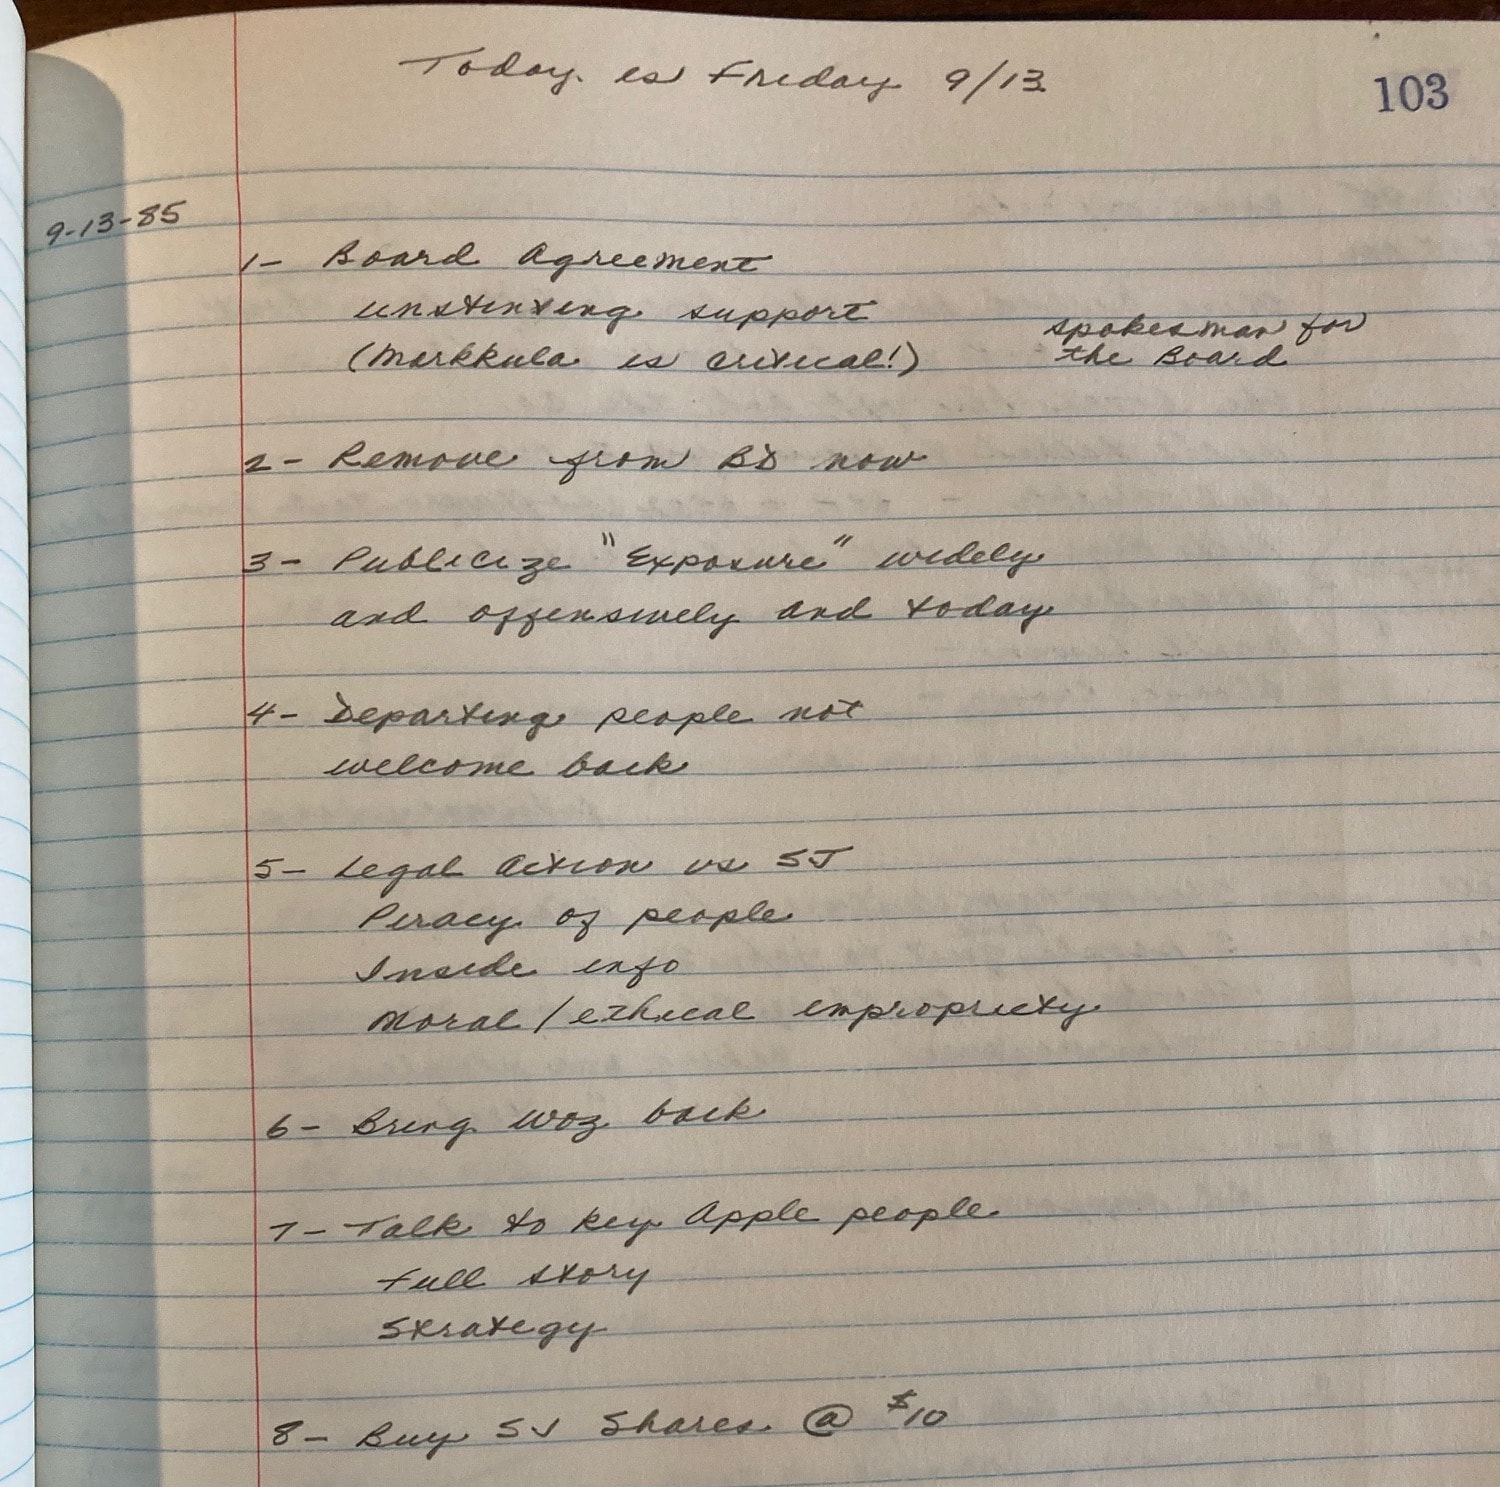 Today is Friday 9/13
103
9-13-85
1- Board Agreement
unstinting support
(Markkula is critical!)
spokesman for
the Board
2- Remove from BD now
3- Publicize "Exposure" widely
and offensively and today
4- Departing people not
welcome back
5- Legal Action vs SJ
Piracy of people
Inside info
Moral/ethical impropriety
6- Bring Woz back
7- Talk to key Apple people
Full story
Strategy
8- Buy SJ Shares @ $10